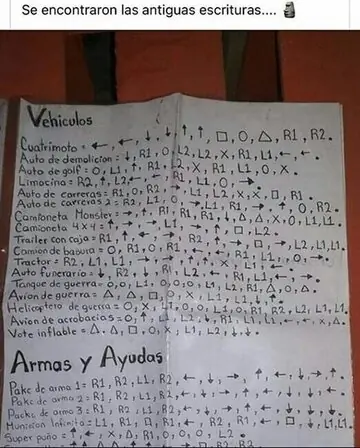 Se encontraron las antiguas escrituras.... 🗿
Vehiculos
Cuatrimoto = ←, ←, ↓, ↓, ↑, ↑, □, O, △, R1, R2.
Auto de demolicion = ↓, R1, O, L2, L2, X, R1, L1, ←, ←.
Auto de golf = O, L1, ↑, R1, L2, X, R1, L1, O, X.
Limocina = R2, ↑, L2, ←, ←, R1, L1, O, →.
Auto de carreras = R1, O, R2, →, L1, L2, X, X, □, R1.
Auto de carreras 2 = R2, L1, O, →, L1, R1, →, ↑, O, R2.
Camioneta Monster = →, ↑, R1, R1, R1, ↓, △, △, X, O, L1, L1.
Camioneta 4x4 = ↑, →, →, L1, →, ↑, □, L2.
Trailer con caja = R1, ↑,
Camion de basura = O, R1, O, R1, ←, ←, R1,
Tractor = R2, L1, L1, →,
Auto funerario = ↓, R2, ↓, R1,
Tanque de guerra = O, O, L1, O, O, O, L1, L2, R1, △, O, △.
Avion de guerra = △, △, □, O, X, L1, L1, ↓, ↑.
Helicoptero de guerra = O, X, L1, O, O, L1, O, R1, R2, L2, L1, L1.
Avion de acrobacias = O, ↑, L1, L2, ↓, R1, L1, L1, ←, ←, X, △.
Vote inflable = △, △, □, O, X, L1, L2, ↓, ↓.
Armas y Ayudas
Pake de arma 1 = R1, R2, L1, R2, ←, ↓, →, ↑, ←, ↓, →, ↑.
Pake de arma 2 = R1, R2, L1, R2, ←, ↓, →, ↑, ←, ↓, ↓, ←.
Packe de arma 3 = R1, R2, L1, R2, ←, ↓, →, ↑, ←, ↓, ↓, ↓.
Municion Infinita = L1, R1, □, R1, ←, R2, R1, ←, □, ↓, L1, L1.
Super puño = ↑, ←, X, △, R1, O, O, O, L2.